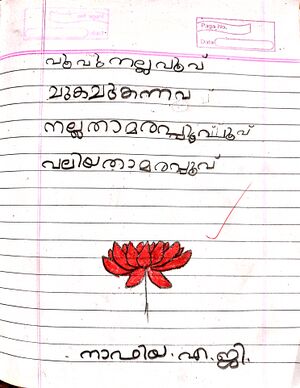 Page No.
Date
പൂവു നല്ല പൂവ്
ചുകചുകന്നവ
നല്ല താമരപ്പൂവ്
വലിയ താമരപ്പൂവ്
നാഫിയ. എ. ജി.